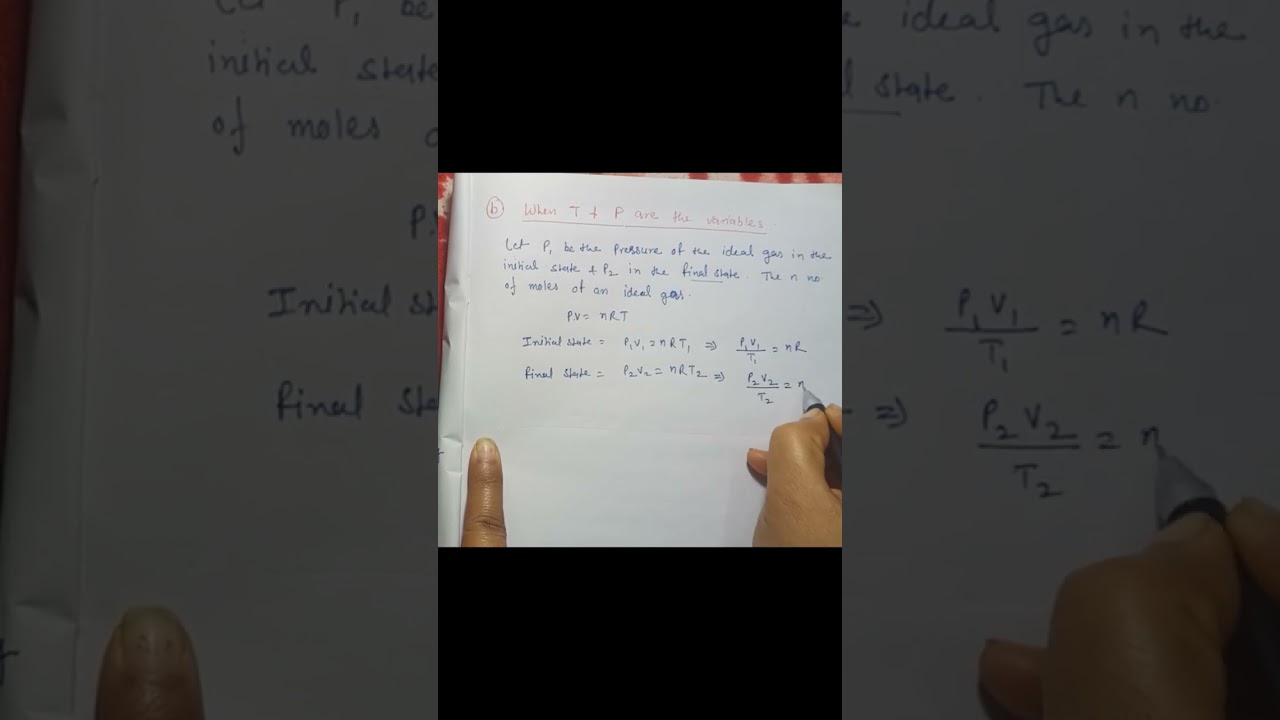 (b) When T & P are the variables.
Let P₁ be the pressure of the ideal gas in the
initial state & P₂ in the final state. The n no.
of moles of an ideal gas.
P.V = nRT
Initial state = P₁V₁ = nRT₁ ⇒ P₁V₁/T₁ = nR
Final state = P₂V₂ = nRT₂ ⇒ P₂V₂/T₂ = n